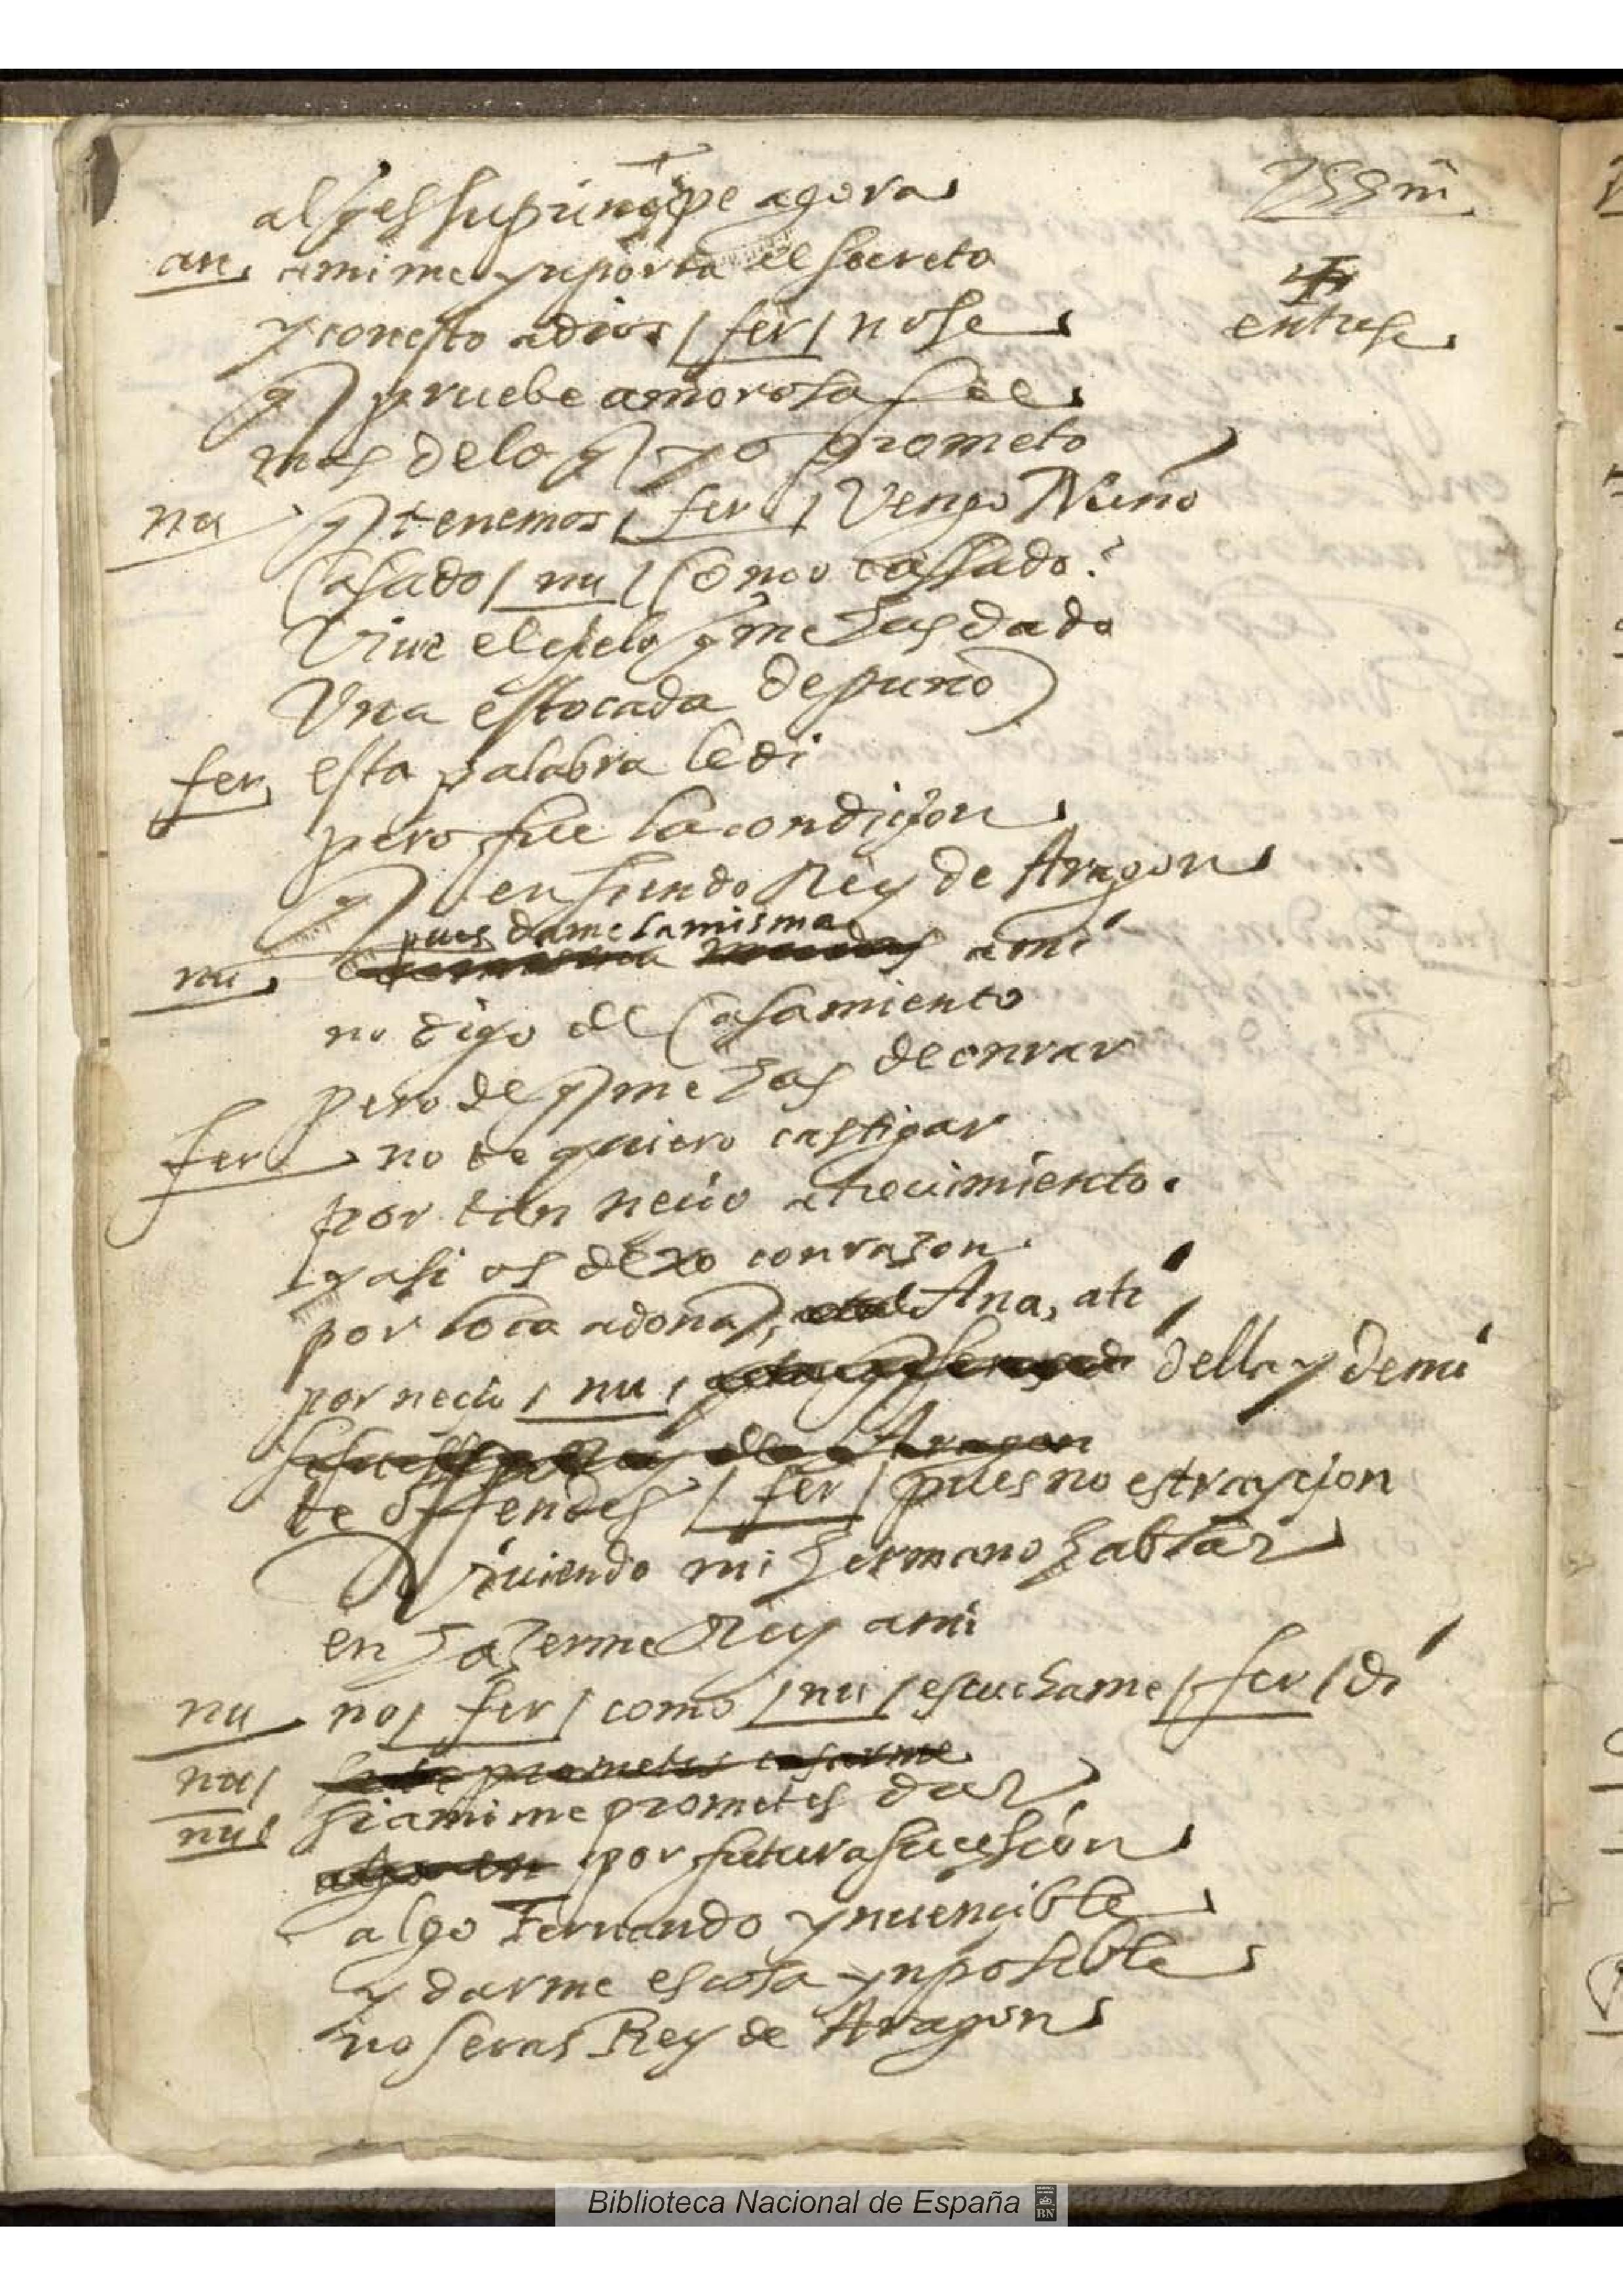 al q es su principe agora
an. a mi me ynporta el secreto
y con esto adios / fer / no se
entrese
q pruebe amorosa fee
mas de lo q yo prometo
nu q tenemos / fer / Vengo Nuño
Casado / nu / Como cassado?
Vive el çielo q me has dado
Una estocada de puño
fer esta palabra le di
pero fue la condiçion
q en siendo Rey de Aragon
pues dame la misma
nu. a mi
no digo de Casamiento
pero de q me has de onrar
fer no te quiero castigar
por tan neçio atreuimiento.
y asi os dexo con razon
por loca a doña Ana, a ti
por neçio / nu / della y de mi
de Aragon
te offendes / fer / pues no es trayçion
viuiendo mi hermano hablar
en hazerme Rey a mi
nu no / fer / como / nu / escuchame / fer / di
nu / prometes casarme
nu / si a mi me prometes dar
algo en por futura suçesion
algo Fernando ynuençible
y darme es cosa ynposible
no seras Rey de Aragon
Biblioteca Nacional de España
BN